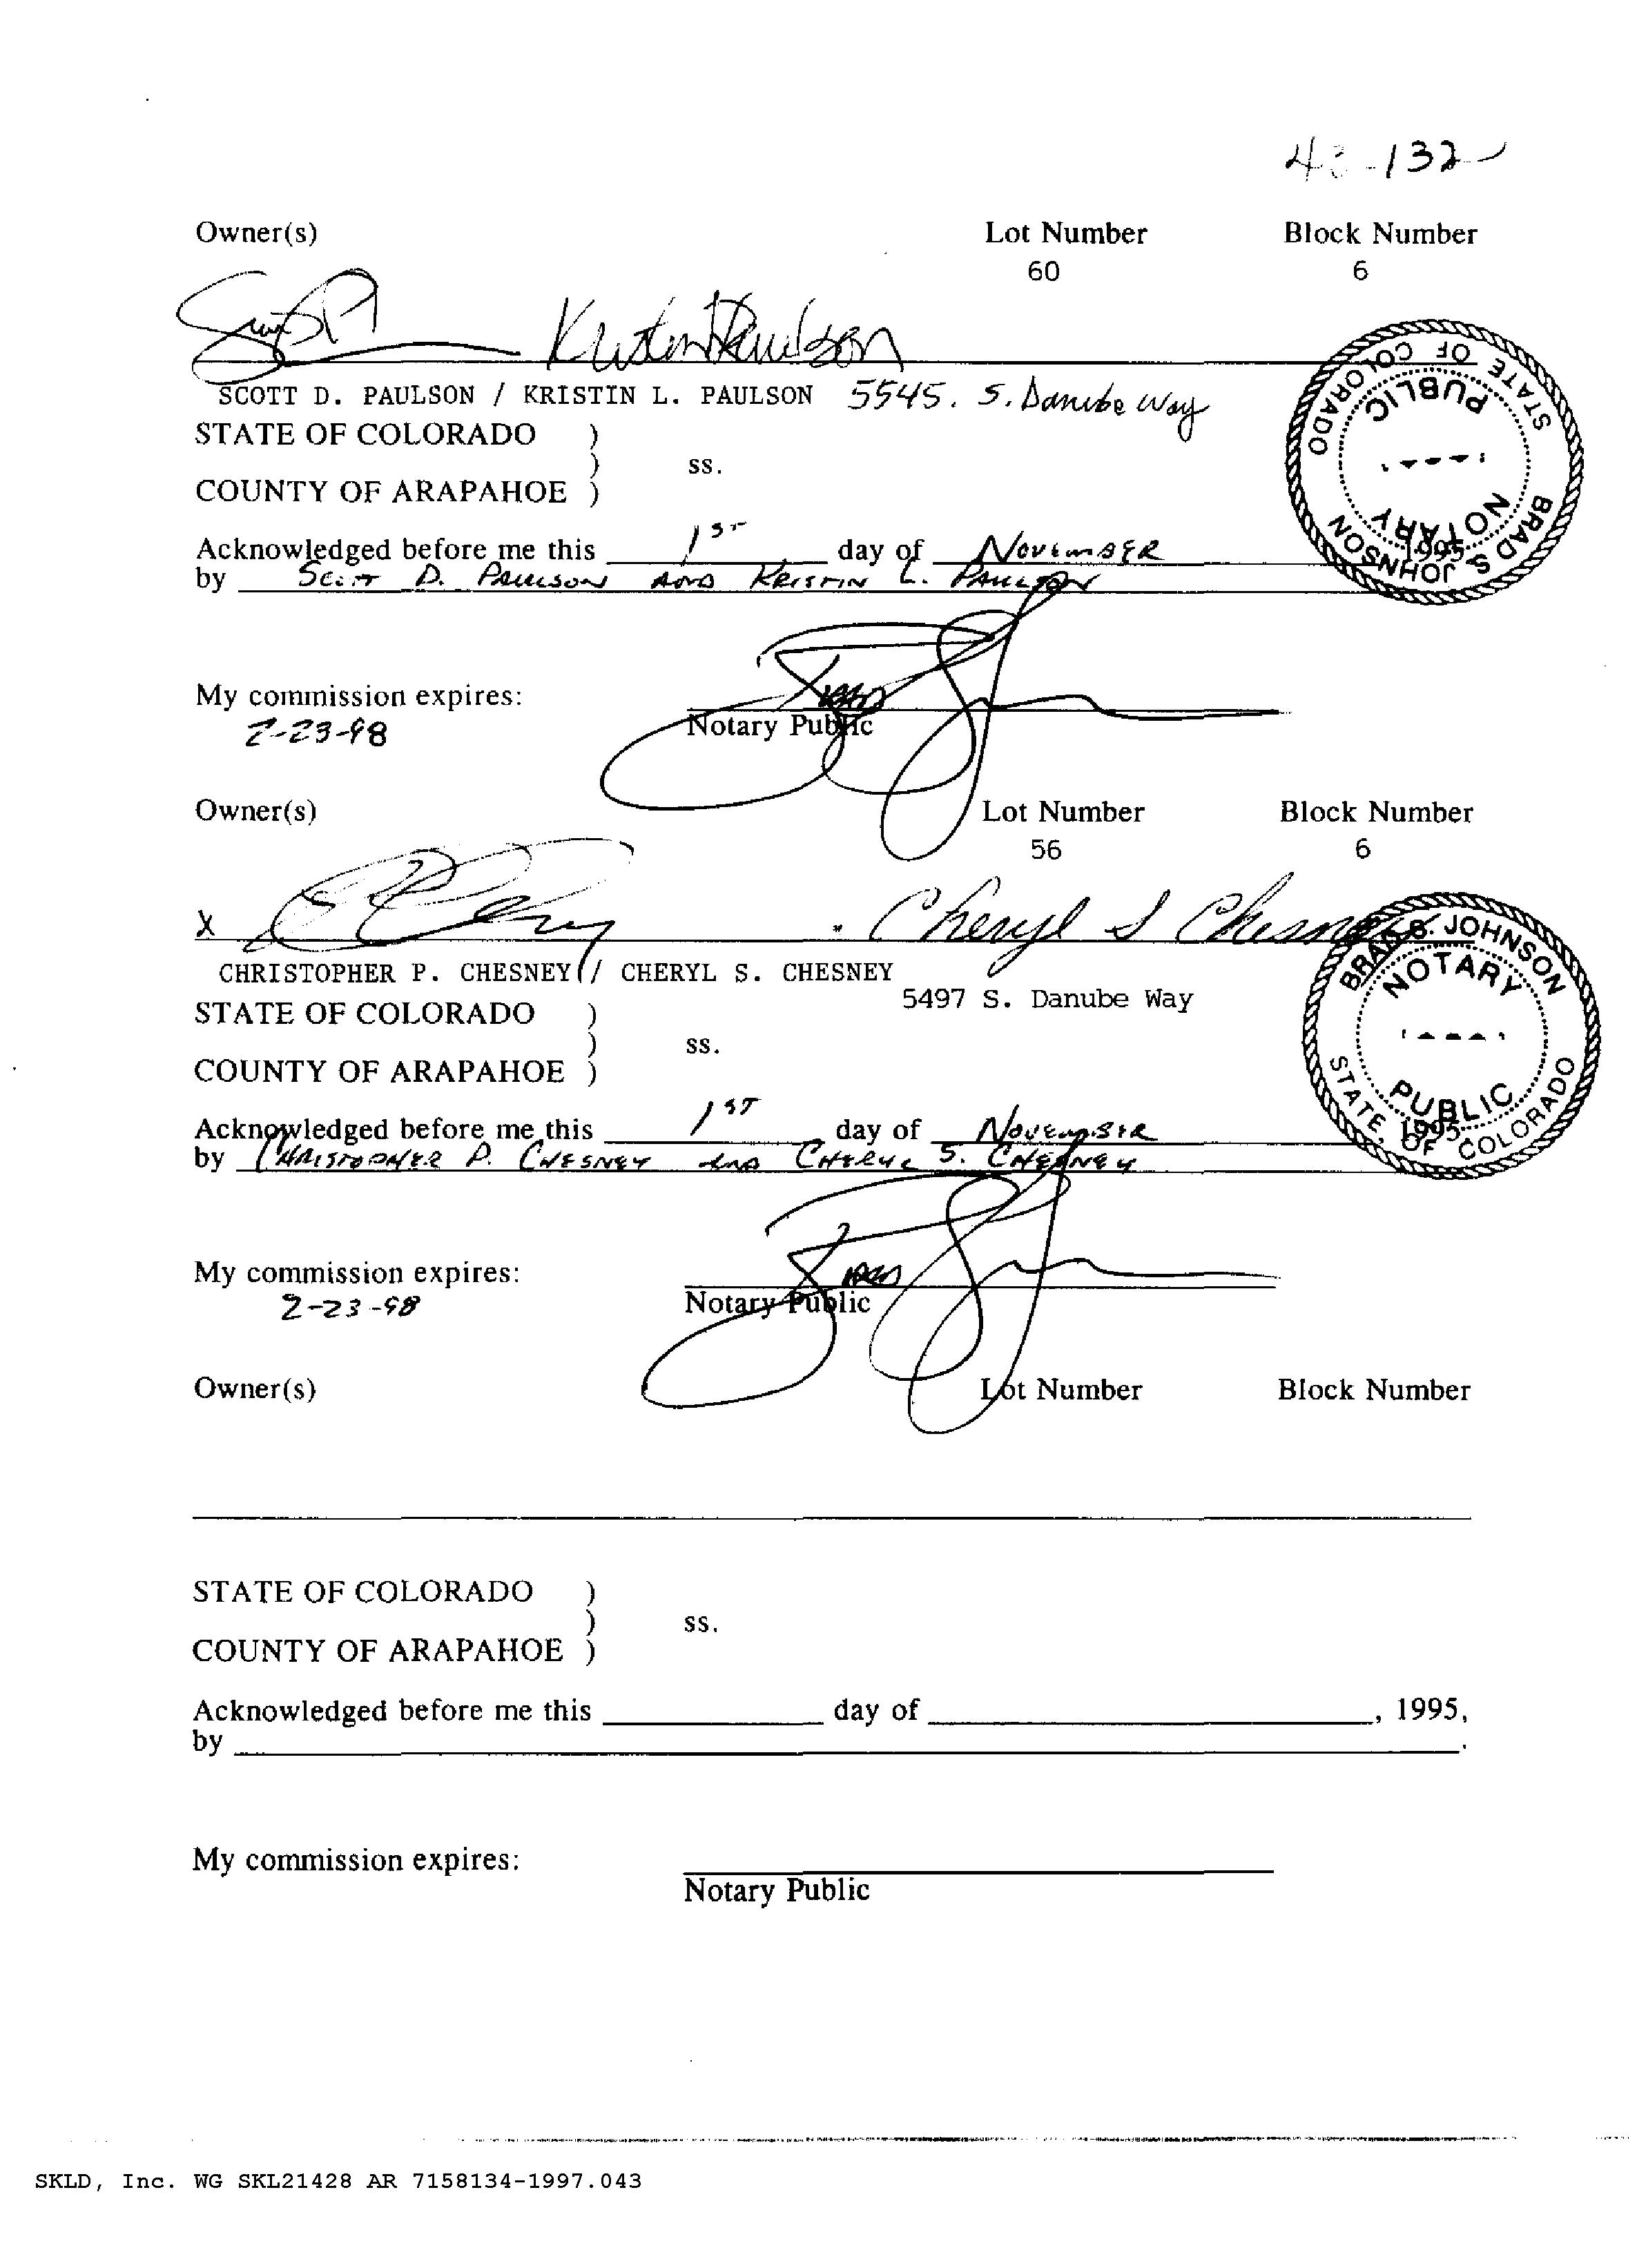 43-132
Owner(s) Lot Number Block Number
60 6
Kristin Paulson
SCOTT D. PAULSON / KRISTIN L. PAULSON 5545. S. Danube Way
STATE OF COLORADO )
) ss.
COUNTY OF ARAPAHOE )
STATE OF COLORADO
BRAD S. JOHNSON
NOTARY
PUBLIC
Acknowledged before me this 1ST day of NOVEMBER 1995
by SCOTT D. PAULSON AND KRISTIN L. PAULSON
My commission expires:
2-23-98
Notary Public
Owner(s) Lot Number Block Number
56 6
X Cheryl S Chesney
CHRISTOPHER P. CHESNEY / CHERYL S. CHESNEY
5497 S. Danube Way
STATE OF COLORADO )
) ss.
COUNTY OF ARAPAHOE )
BRAD S. JOHNSON
NOTARY
PUBLIC
STATE OF COLORADO
Acknowledged before me this 1ST day of NOVEMBER 1995
by CHRISTOPHER P. CHESNEY AND CHERYL S. CHESNEY
My commission expires:
2-23-98
Notary Public
Owner(s) Lot Number Block Number
STATE OF COLORADO )
) ss.
COUNTY OF ARAPAHOE )
Acknowledged before me this day of , 1995,
by .
My commission expires:
Notary Public
SKLD, Inc. WG SKL21428 AR 7158134-1997.043